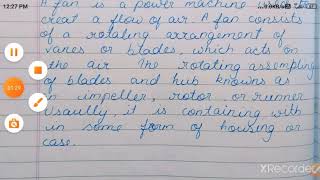 12:27 PM
A fan is a power machine
creat a flow of air. A fan consists
of a rotating arrangement of
vanes or blades, which acts on
the air The rotating assembling
of blades and hub knowns as
in impeller, rotor or runner
Usaully, it is containing with
in some form of housing or
case.
01:29
XRecorder